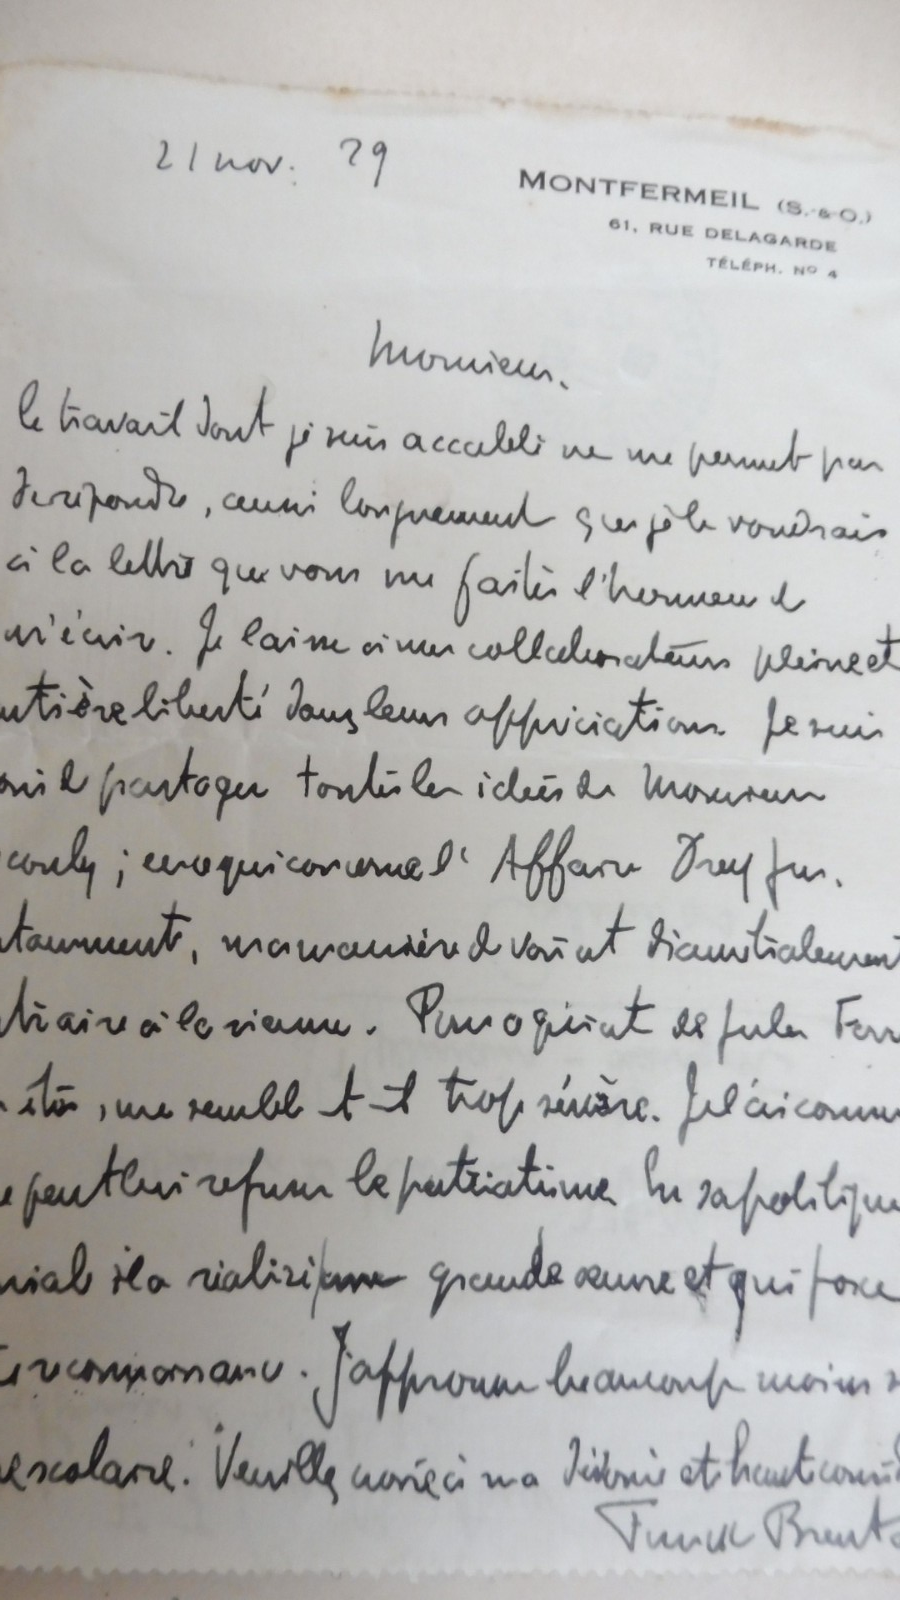 21 nov. 29
MONTFERMEIL (S.-&-O.)
61, RUE DELAGARDE
TÉLÉPH. Nº 4
Monsieur.
le travail dont je suis accablé ne me permet pas
de répondre, aussi longuement que je le voudrais
à la lettre que vous me faites l'honneur de
m'écrire. Je laisse à mes collaborateurs pleine et
ntière liberté dans leurs appréciations. Je suis
de partager toutes les idées de Monsieur
; en ce qui concerne l'Affaire Dreyfus.
tamment, ma manière de voir est diamétralement
traire à la sienne. Pour ce qui est de Jules Ferr
été, me semble-t-il trop sévère. Je l'ai connu
e peut lui refuser le patriotisme. En sa politique
niale il a réalisé une grande œuvre et qui force
reconnaissance. J'approuve beaucoup moins s
e scolaire. Veuillez croire à ma et haute consid
Funck Brent